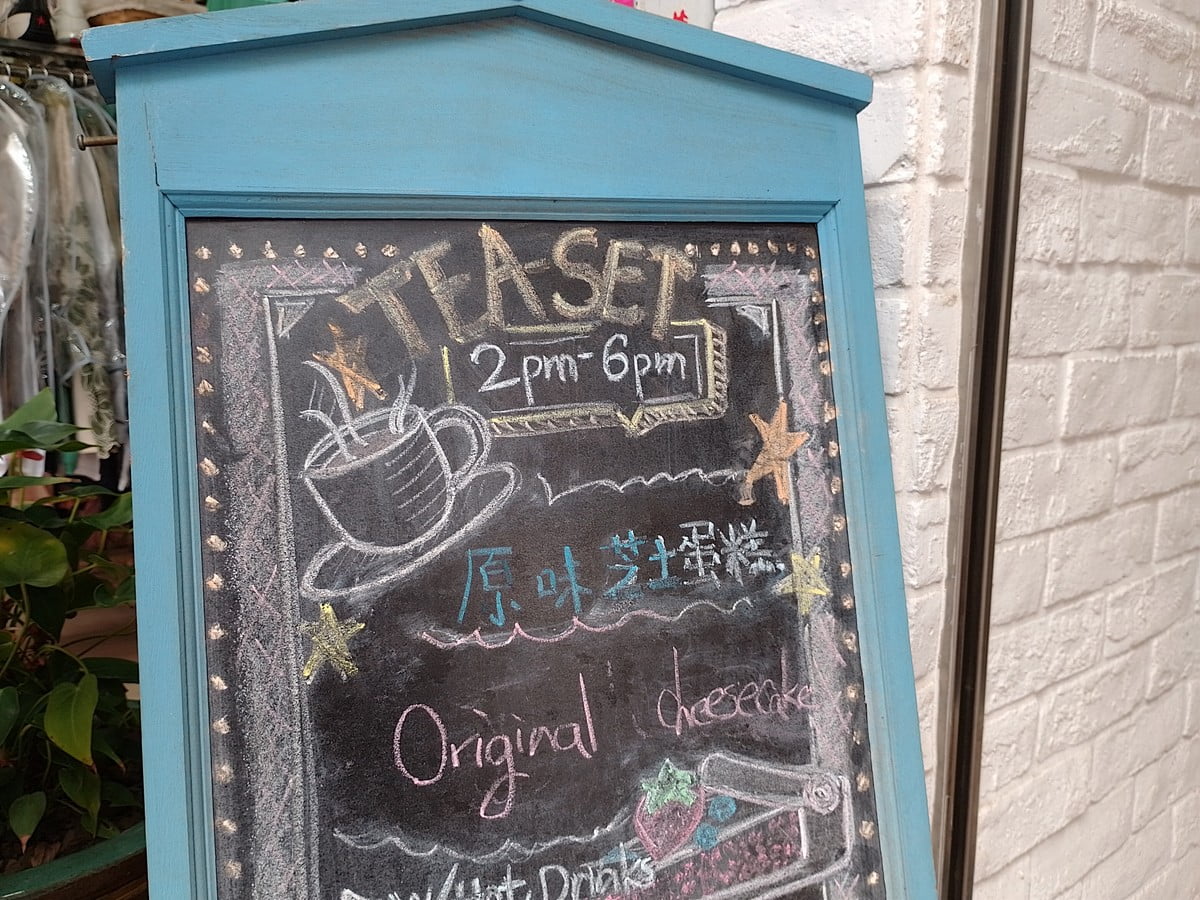 TEA-SET
2pm-6pm
原味芝士蛋糕
Original cheesecake
w/Hot Drinks